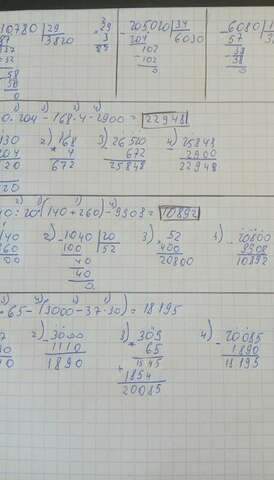 10780 | 29
3820
29
3
87
205020 | 34
204 6030
102
102
0
6080
57
38
38
0
58
58
0
0·204-168·4-2900=22948
1) 130
204
2) 168
4
672
3) 26520
672
25848
4) 25848
2900
22948
40:20·(140+260)-9908=10892
1) 140
260
00
2) 1040 | 20
100 52
40
40
0
3) 52
400
20800
4) 20800
9908
10892
·65-(3000-37·30)=18195
2) 3000
1110
1890
3) 309
65
1545
1854
20085
4) 20085
1890
18195